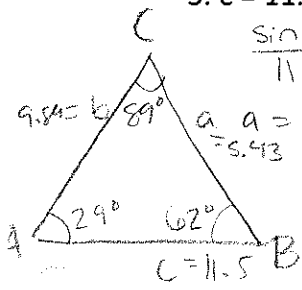 C
sin
11
9.54 = b 89° a a =
= 5.43
A 29° 62° B
C = 11.5